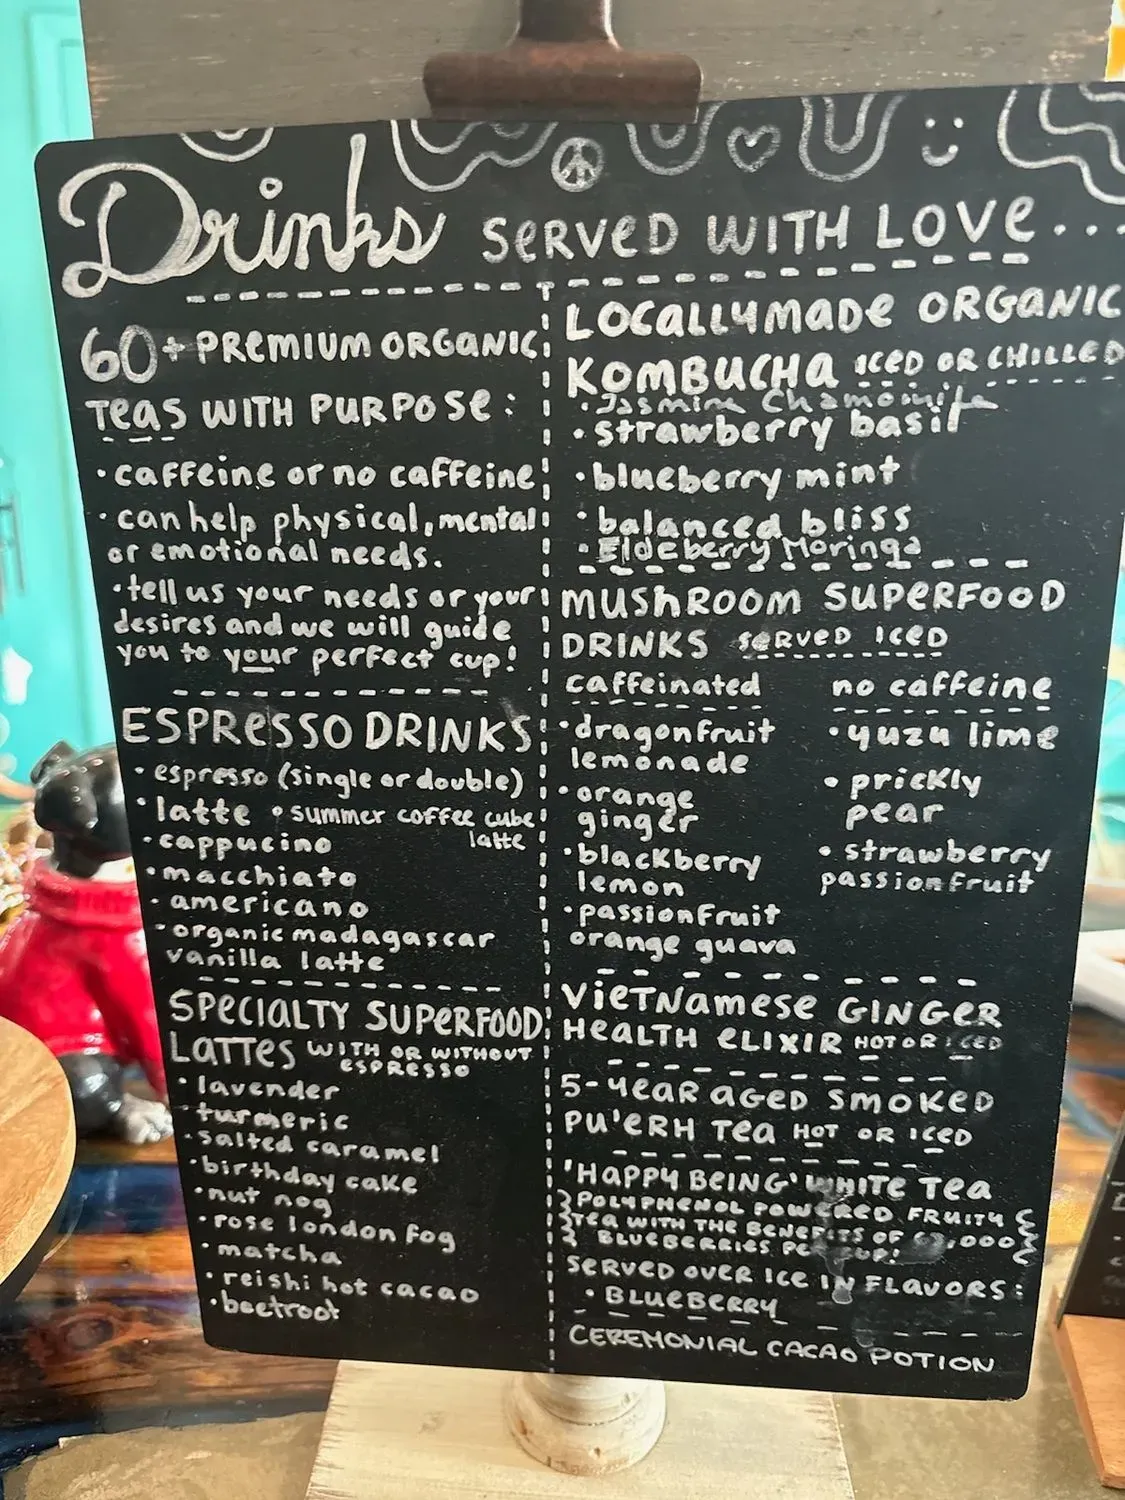 Drinks SERVED WITH LOVE...
60+ PREMIUM ORGANIC
TEAS WITH PURPOSE:
• caffeine or no caffeine
• can help physical, mental
or emotional needs.
• tell us your needs or your
desires and we will guide
you to your perfect cup!
ESPRESSO DRINKS
• espresso (single or double)
• latte • summer coffee cube
latte
• cappucino
• macchiato
• americano
• organic madagascar
vanilla latte
SPECIALTY SUPERFOOD
LATTES WITH OR WITHOUT
ESPRESSO
• lavender
• turmeric
• salted caramel
• birthday cake
• nut nog
• rose london fog
• matcha
• reishi hot cacao
• beetroot
LOCALLY MADE ORGANIC
KOMBUCHA ICED OR CHILLED
• Jasmine Chamomile
• strawberry basil
• blueberry mint
• balanced bliss
• Eldeberry Moringa
MUSHROOM SUPERFOOD
DRINKS SERVED ICED
caffeinated
• dragonfruit
lemonade
• orange
ginger
• blackberry
lemon
• passionfruit
orange guava
no caffeine
• yuzu lime
• prickly
pear
• strawberry
passionfruit
VIETNAMESE GINGER
HEALTH ELIXIR HOT OR ICED
5-YEAR AGED SMOKED
PU'ERH TEA HOT OR ICED
'HAPPY BEING' WHITE TEA
POLYPHENOL POWERED FRUITY
TEA WITH THE BENEFITS OF
BLUEBERRIES CUP!
SERVED OVER ICE IN FLAVORS:
• BLUEBERRY
CEREMONIAL CACAO POTION